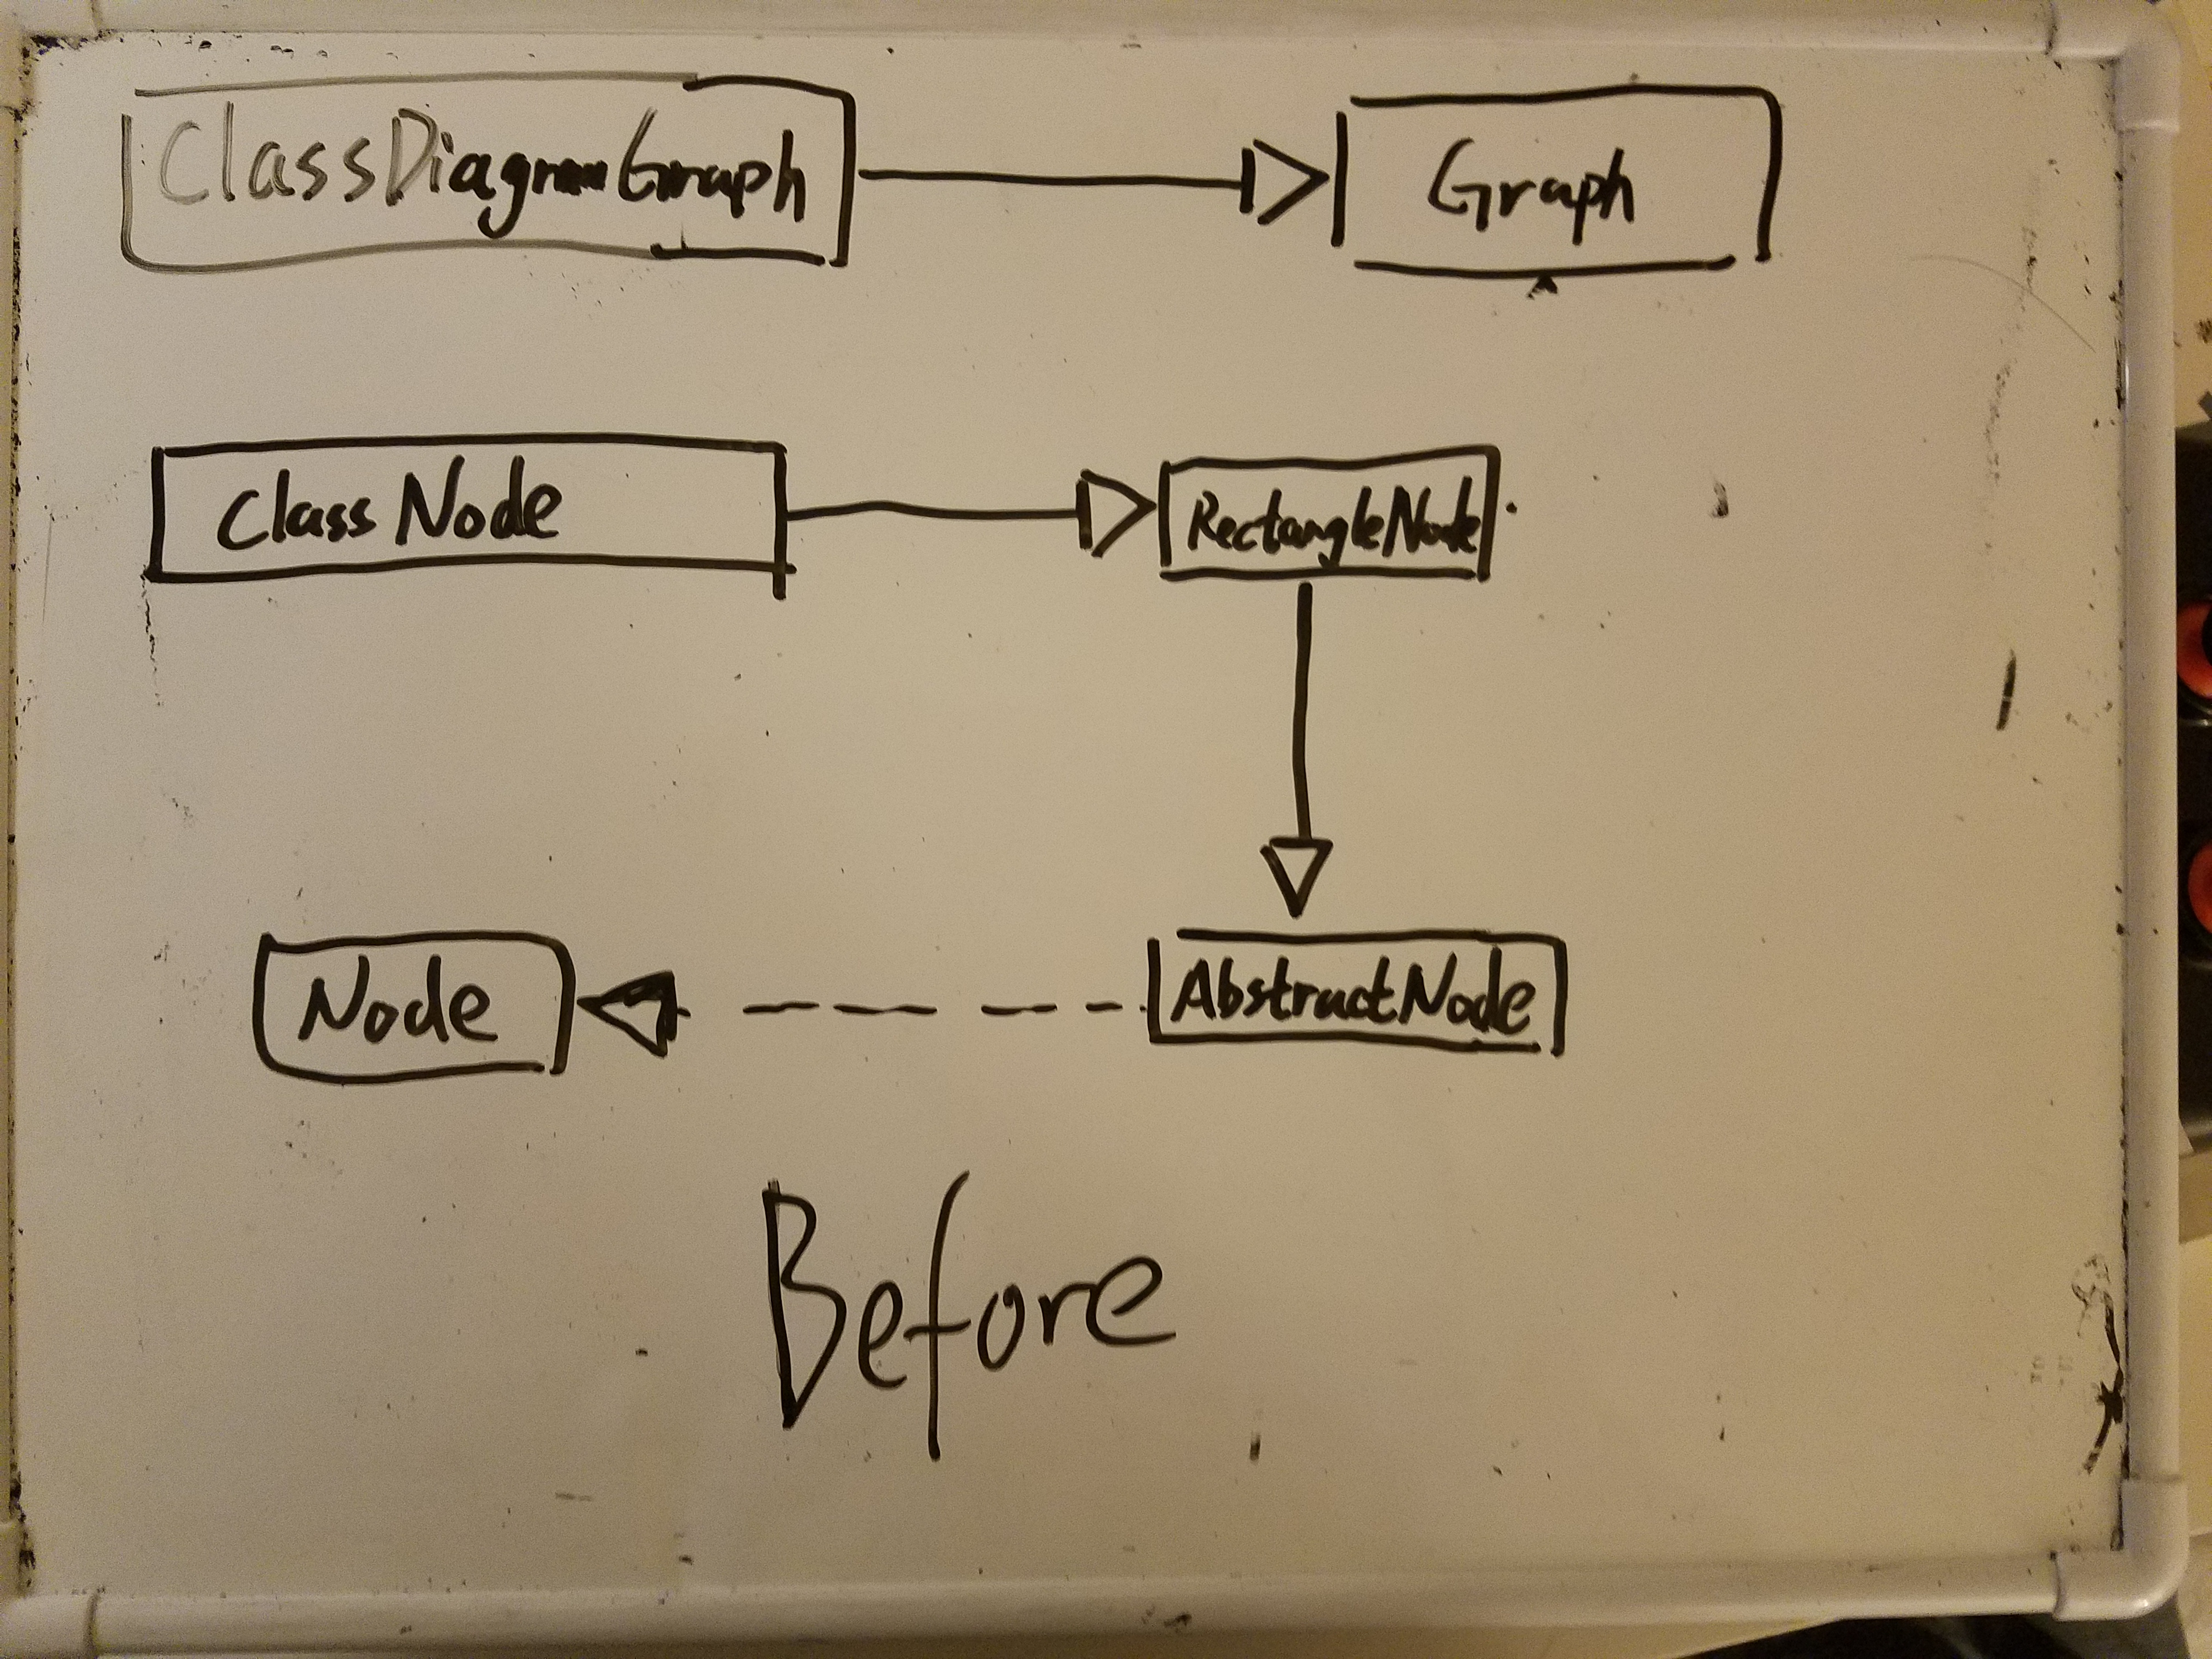 ClassDiagramGraph
Graph
Class Node
RectangleNode
Node
AbstractNode
Before